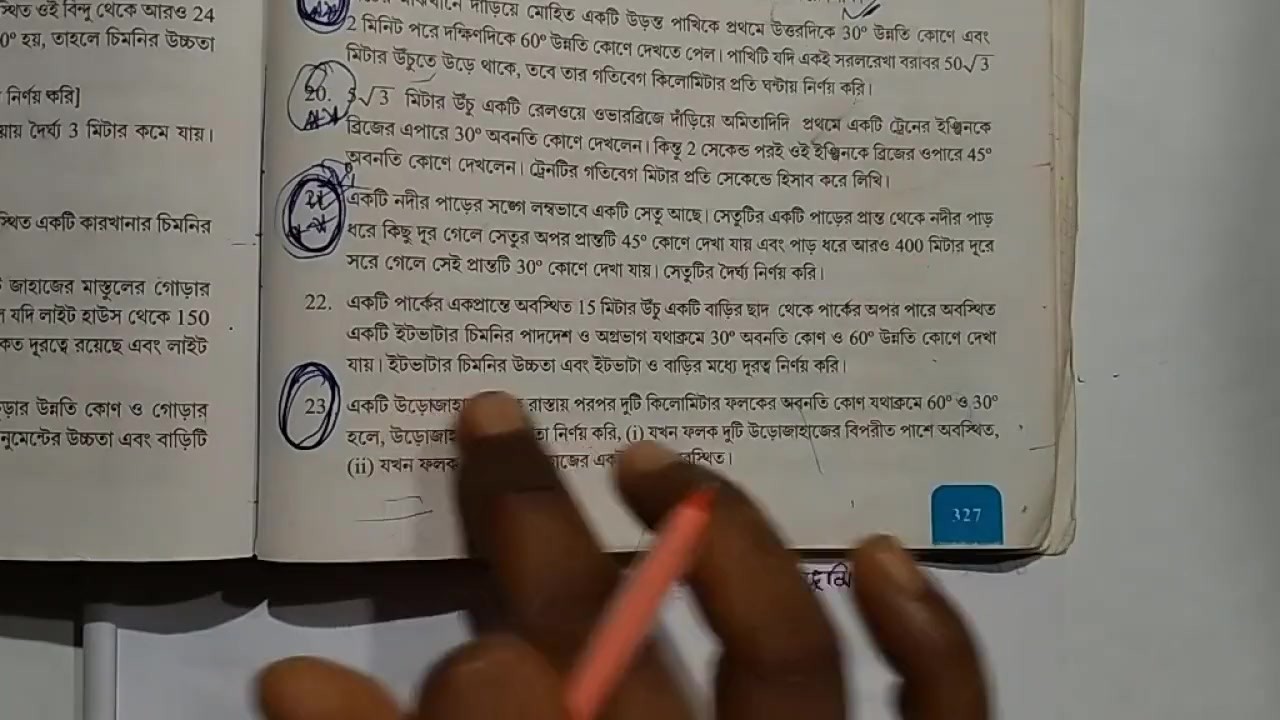 স্থিত ওই বিন্দু থেকে আরও 24
0° হয়, তাহলে চিমনির উচ্চতা
নির্ণয় করি]
য়ায় দৈর্ঘ্য 3 মিটার কমে যায়।
স্থিত একটি কারখানার চিমনির
জাহাজের মাস্তুলের গোড়ার
যদি লাইট হাউস থেকে 150
কত দূরত্বে রয়েছে এবং লাইট
ড়ার উন্নতি কোণ ও গোড়ার
নুমেন্টের উচ্চতা এবং বাড়িটি
দাঁড়িয়ে মোহিত একটি উড়ন্ত পাখিকে প্রথমে উত্তরদিকে 30° উন্নতি কোণে এবং
2 মিনিট পরে দক্ষিণদিকে 60° উন্নতি কোণে দেখতে পেল। পাখিটি যদি একই সরলরেখা বরাবর 50√3
মিটার উঁচুতে উড়ে থাকে, তবে তার গতিবেগ কিলোমিটার প্রতি ঘন্টায় নির্ণয় করি।
20. √3 মিটার উঁচু একটি রেলওয়ে ওভারব্রিজে দাঁড়িয়ে অমিতাদিদি প্রথমে একটি ট্রেনের ইঞ্জিনকে
ব্রিজের এপারে 30° অবনতি কোণে দেখলেন। কিন্তু 2 সেকেন্ড পরই ওই ইঞ্জিনকে ব্রিজের ওপারে 45°
অবনতি কোণে দেখলেন। ট্রেনটির গতিবেগ মিটার প্রতি সেকেন্ডে হিসাব করে লিখি।
একটি নদীর পাড়ের সঙ্গে লম্বভাবে একটি সেতু আছে। সেতুটির একটি পাড়ের প্রান্ত থেকে নদীর পাড়
ধরে কিছু দূর গেলে সেতুর অপর প্রান্তটি 45° কোণে দেখা যায় এবং পাড় ধরে আরও 400 মিটার দূরে
সরে গেলে সেই প্রান্তটি 30° কোণে দেখা যায়। সেতুটির দৈর্ঘ্য নির্ণয় করি।
22. একটি পার্কের একপ্রান্তে অবস্থিত 15 মিটার উঁচু একটি বাড়ির ছাদ থেকে পার্কের অপর পারে অবস্থিত
একটি ইটভাটার চিমনির পাদদেশ ও অগ্রভাগ যথাক্রমে 30° অবনতি কোণ ও 60° উন্নতি কোণে দেখা
যায়। ইটভাটার চিমনির উচ্চতা এবং ইটভাটা ও বাড়ির মধ্যে দূরত্ব নির্ণয় করি।
23 একটি উড়োজাহা রাস্তায় পরপর দুটি কিলোমিটার ফলকের অবনতি কোণ যথাক্রমে 60° ও 30°
হলে, উড়োজা তা নির্ণয় করি, (i) যখন ফলক দুটি উড়োজাহাজের বিপরীত পাশে অবস্থিত,
(ii) যখন ফলক াজের এক বস্থিত।
327